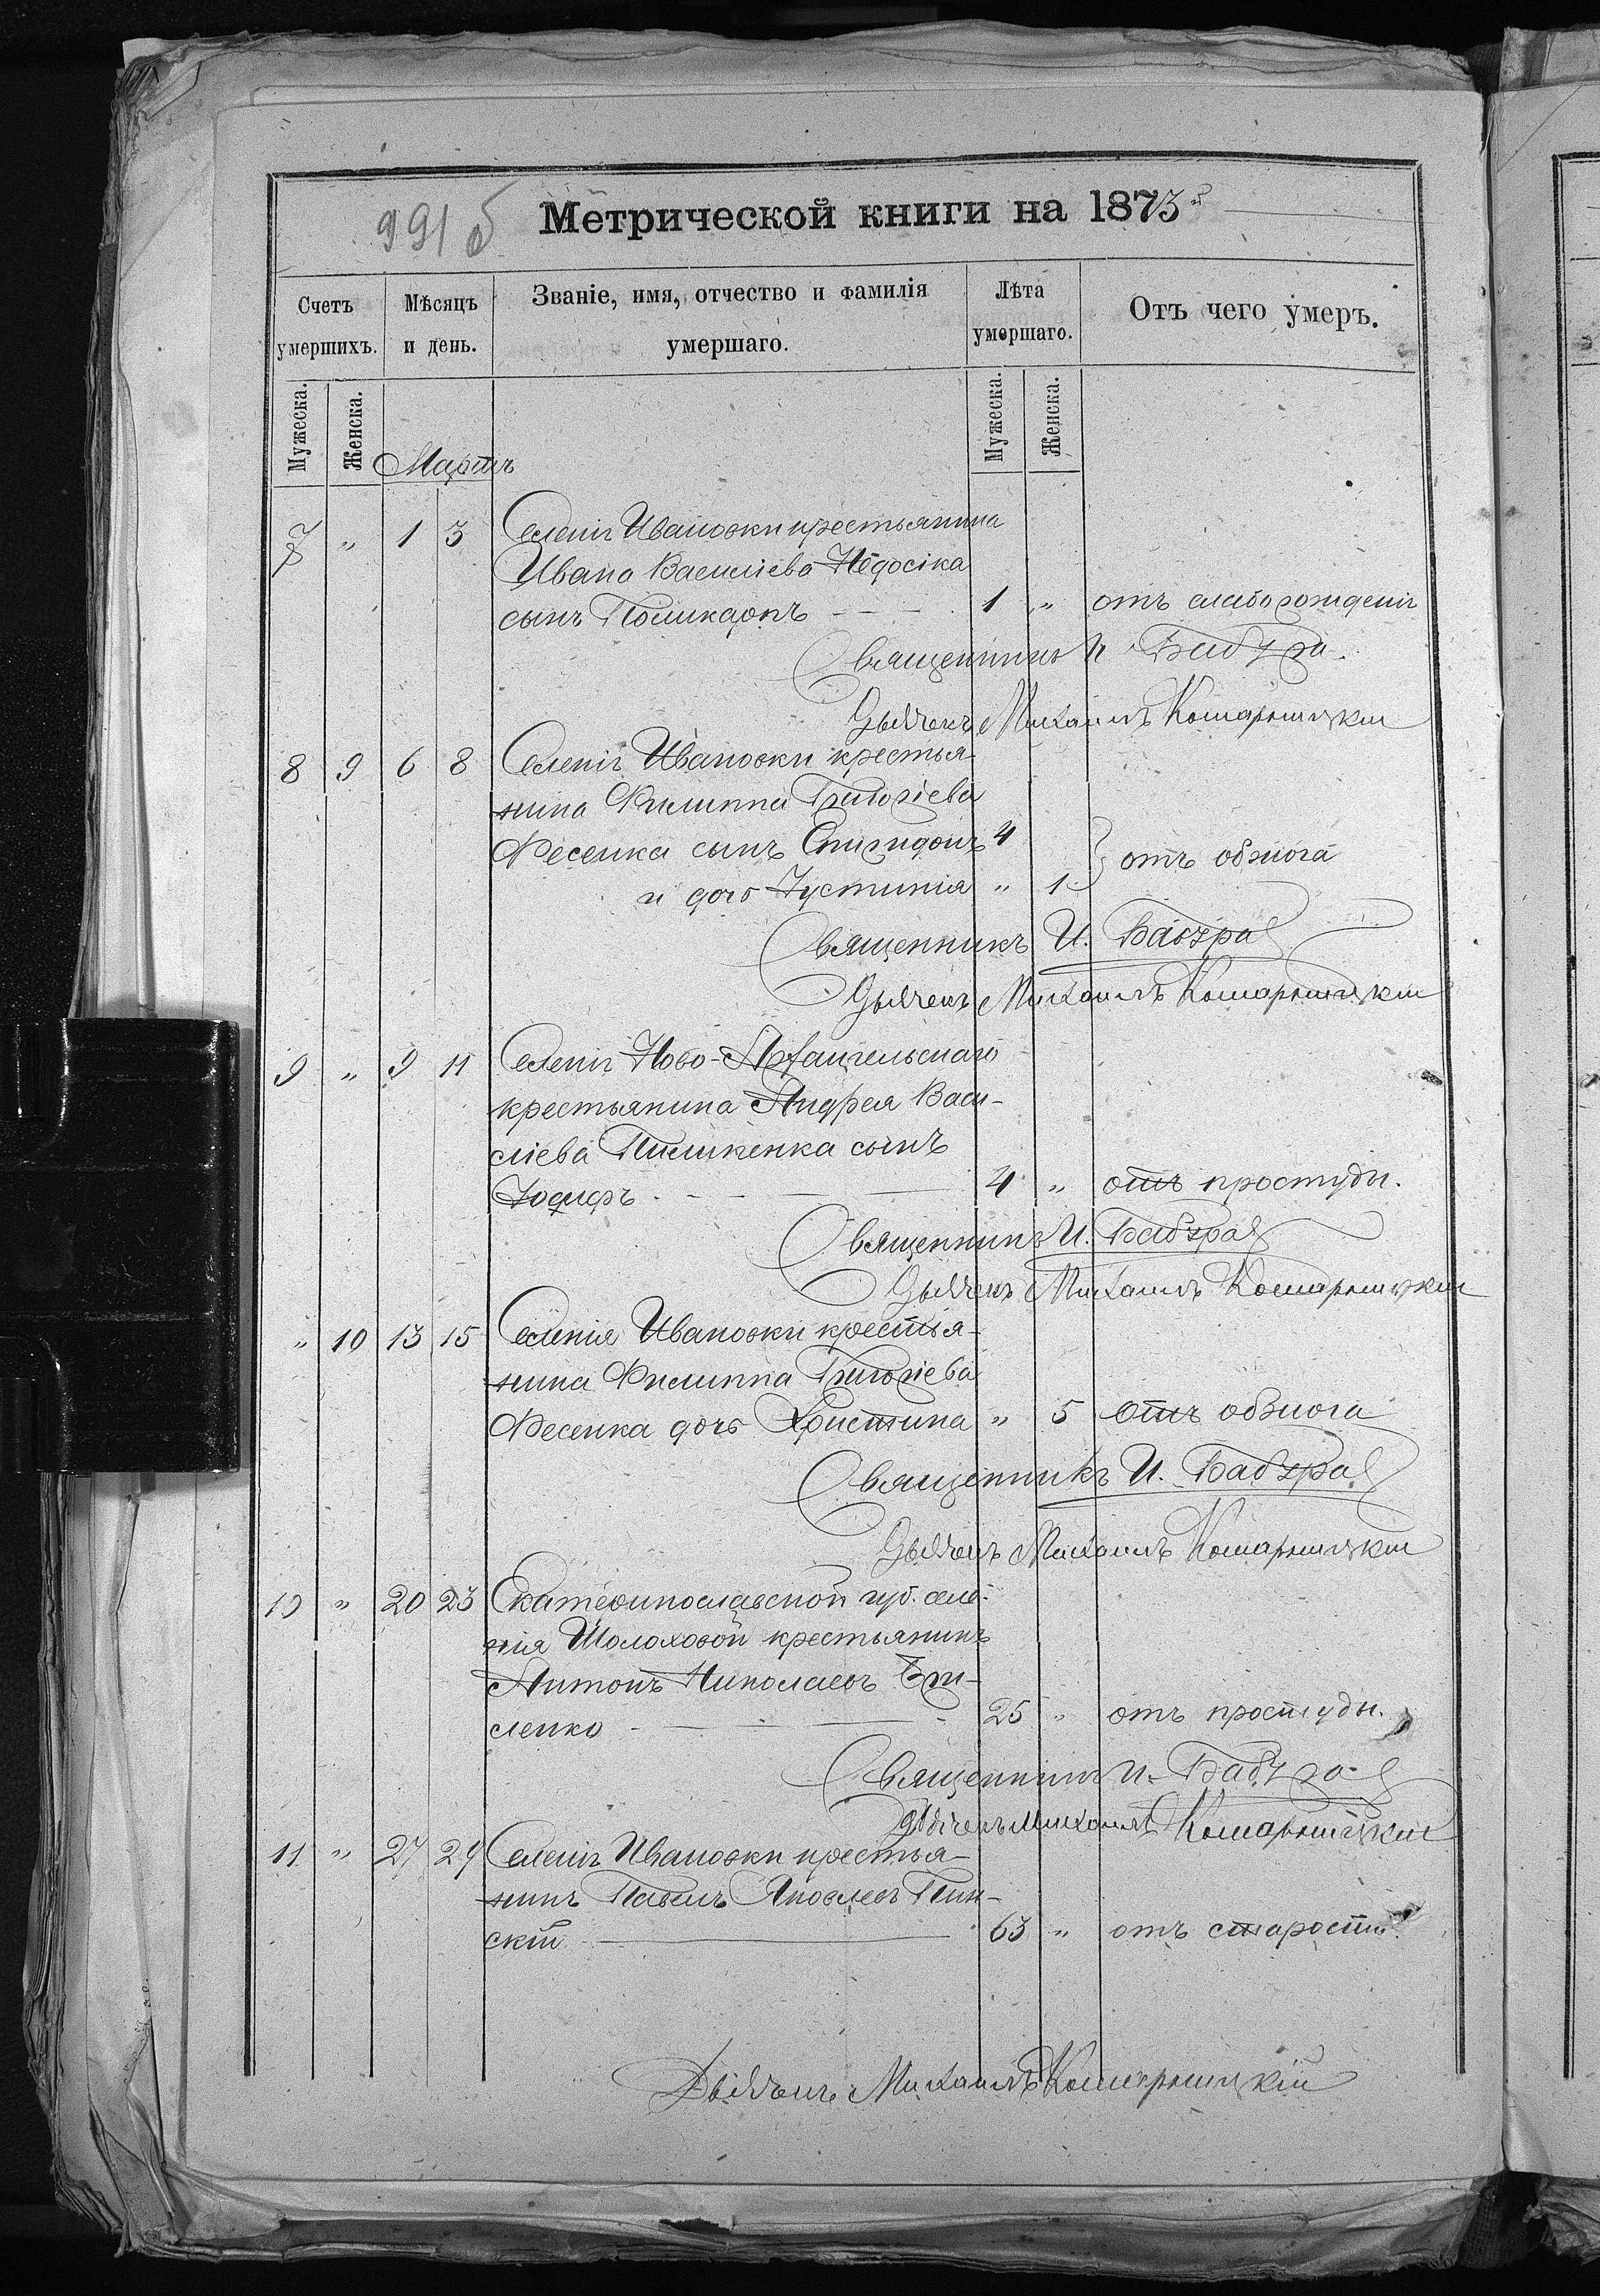 991 б Метрической книги на 1873й
Счетъ умершихъ. Мѣсяцъ и день. Званіе, имя, отчество и фамилія умершаго. Лѣта умершаго. Отъ чего умеръ.
Мужеска. Женска. Мартъ Мужеска. Женска.
7 " 1 3 Селенія Ивановки крестьянина
Ивана Василіева Недосіка
сынъ Поликарпъ 1 " отъ слабо рожденія
Священникъ И Бабура
Дьячекъ Михаилъ
8 9 6 8 Селенія Ивановки крестья-
нина Филиппа Григоріева
Фесенка сынъ Спиридонъ 4
отъ обжога
и дочь Іустинія " 1
Священникъ И. Бабура
Дьячекъ Михаилъ
9 " 9 11 Селенія Ново-Архангельскаго
крестьянина Андрея Васи-
ліева Пилипенка сынъ
Іосифъ 4 " отъ простуды.
Священникъ И. Бабура
Дьячекъ Михаилъ
" 10 13 15 Селенія Ивановки крестья-
нина Филиппа Григоріева
Фесенка дочь Христина " 5 Отъ обжога
Священникъ И. Бабура
Дьячекъ Михаилъ
10 " 20 23 Екатеринославской губ. селе-
нія Шолоховой крестьянинъ
Антонъ Николаевъ
ленко 25 " отъ простуды.
Священникъ И. Бабура
Дьячекъ Михаилъ
11 " 27 29 Селенія Ивановки крестья-
нинъ Павелъ Яковлевъ Пин-
скій 63 " отъ старости.
Дьячекъ Михаилъ